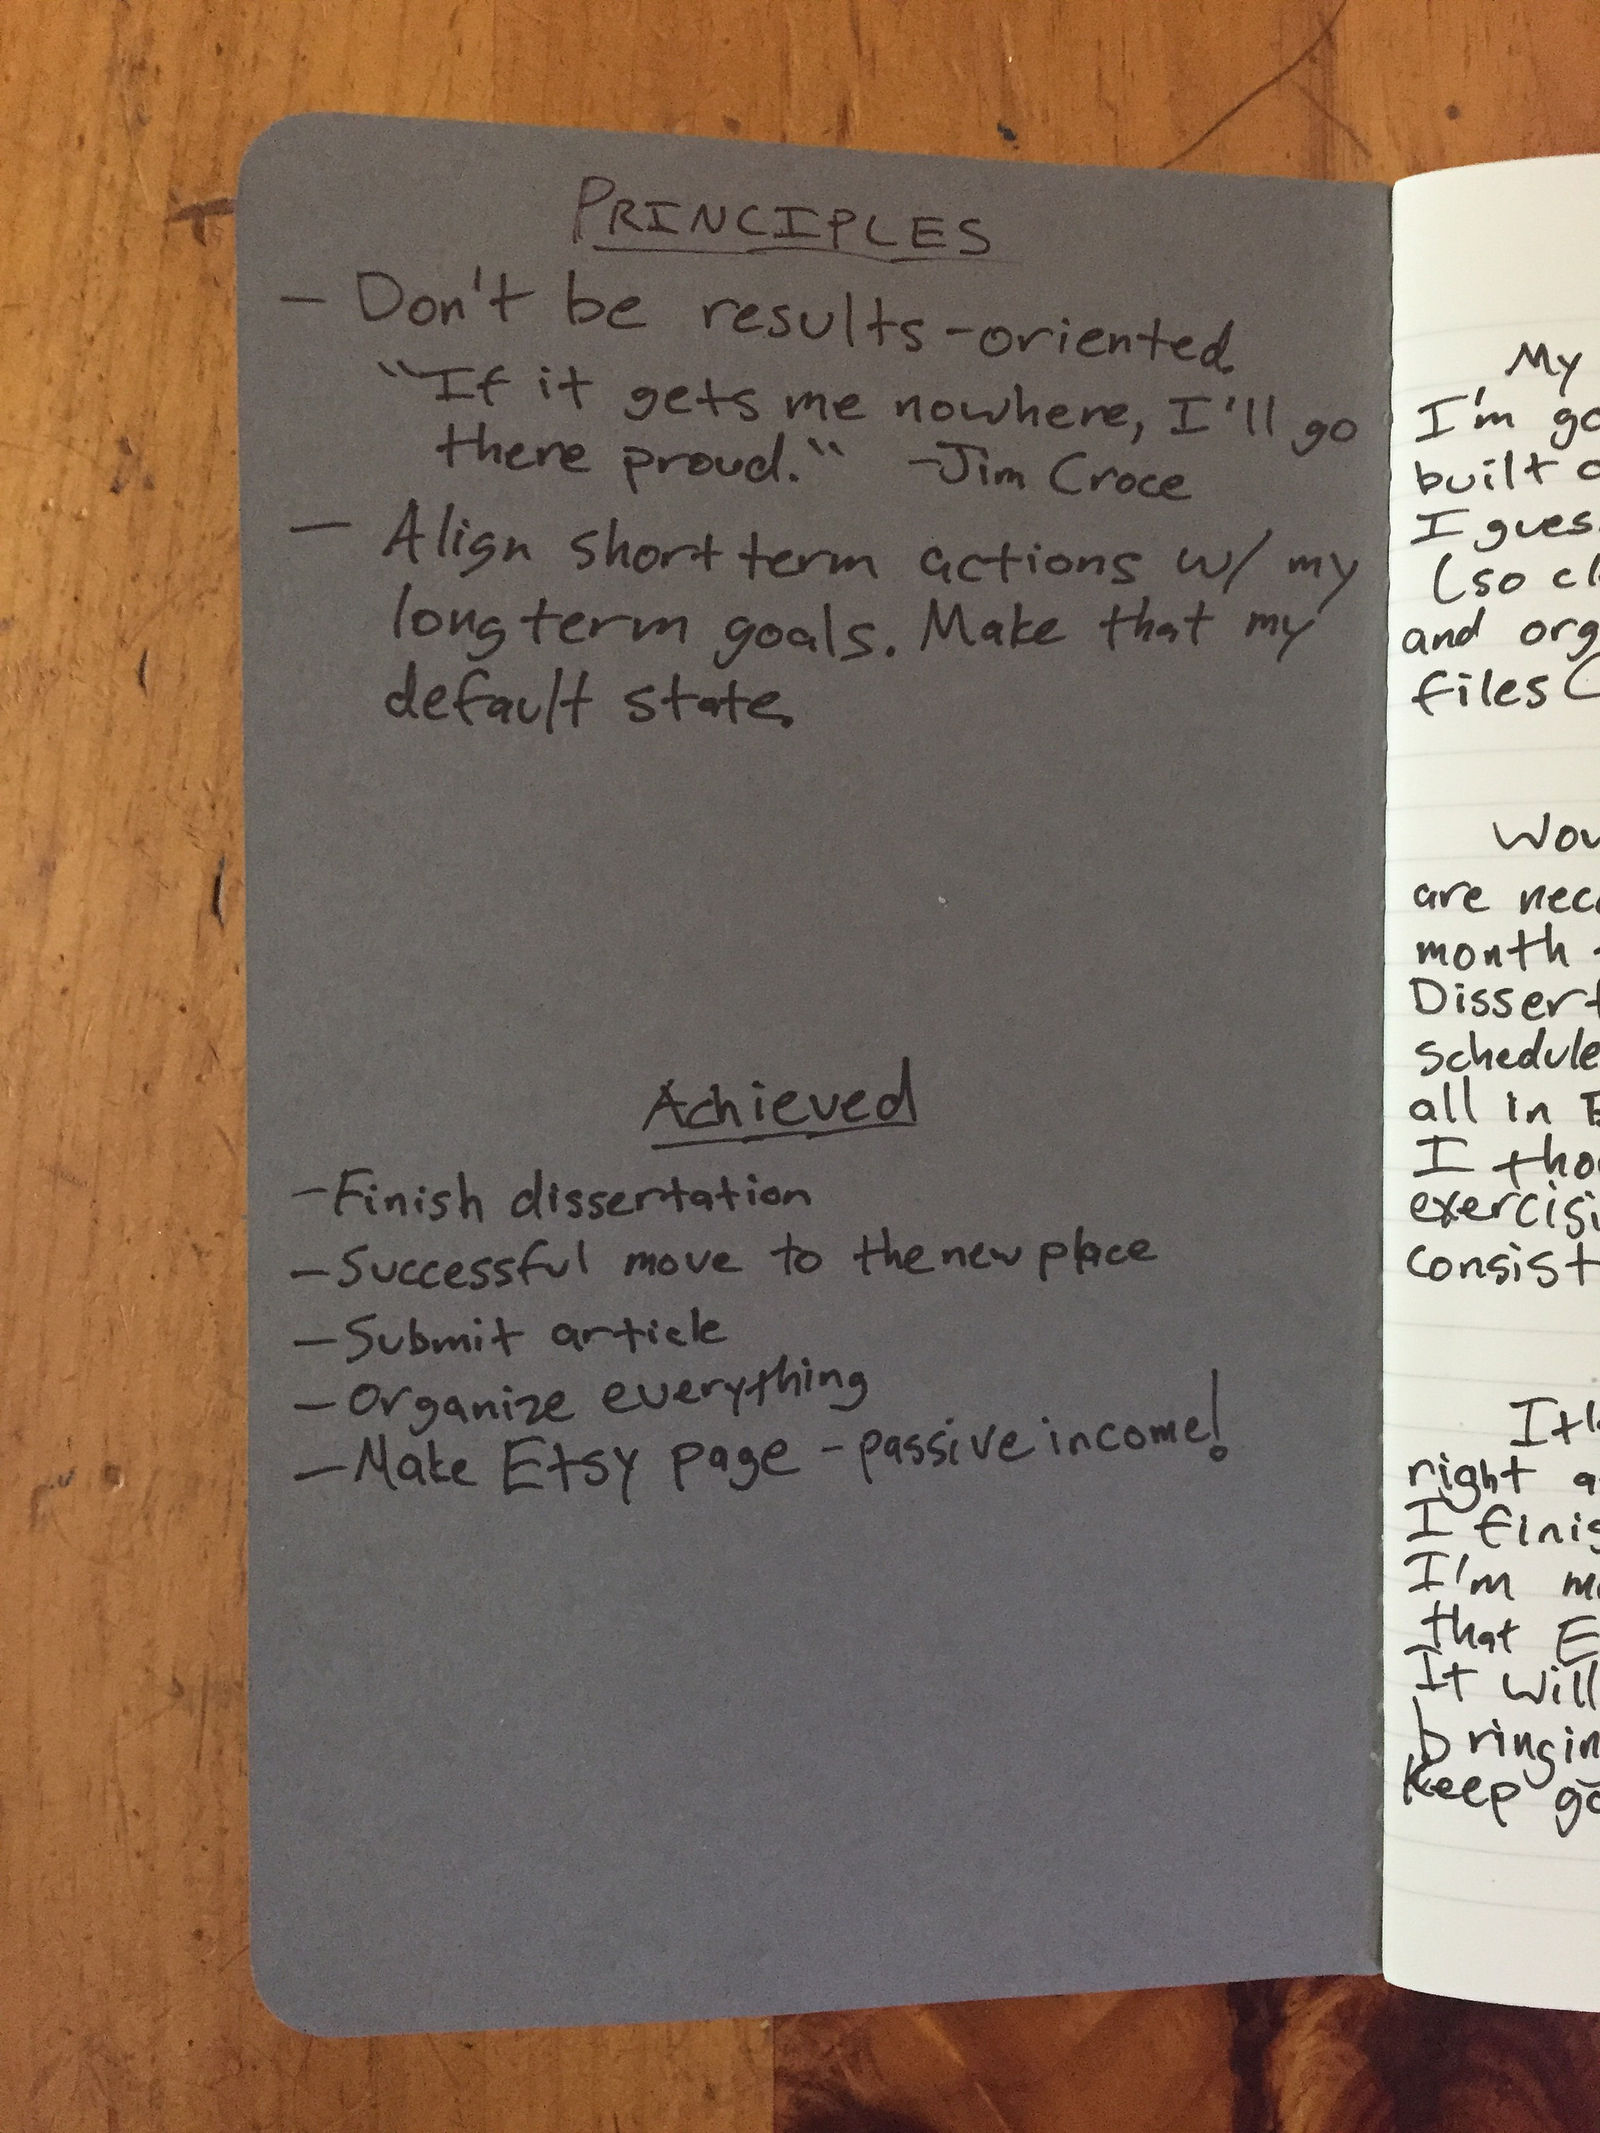 PRINCIPLES
— Don't be results-oriented.
"If it gets me nowhere, I'll go
there proud." -Jim Croce
— Align short term actions w/ my
long term goals. Make that my
default state.
Achieved
— Finish dissertation
— Successful move to the new place
— Submit article
— Organize everything
— Make Etsy page - passive income!
My
I'm
built
I
(so
and
files
are
month
schedule
all in
I
right
I
I'm
that
It will
Keep